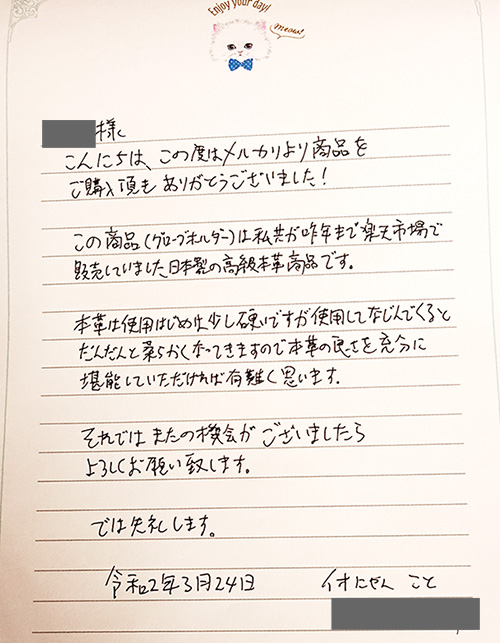 Enjoy your day!
meow!
様
こんにちは、この度はメルカリより商品を
ご購入頂きありがとうございました！
この商品(グローブホルダー)は私共が昨年まで楽天市場で
販売していました日本製の高級本革商品です。
本革は使用はじめは少し硬いですが使用してなじんでくると
だんだんと柔らかくなってきますので本革の良さを充分に
堪能していただければ有難く思います。
それではまたの機会がございましたら
よろしくお願い致します。
では失礼します。
令和2年3月24日 イオにせん こと